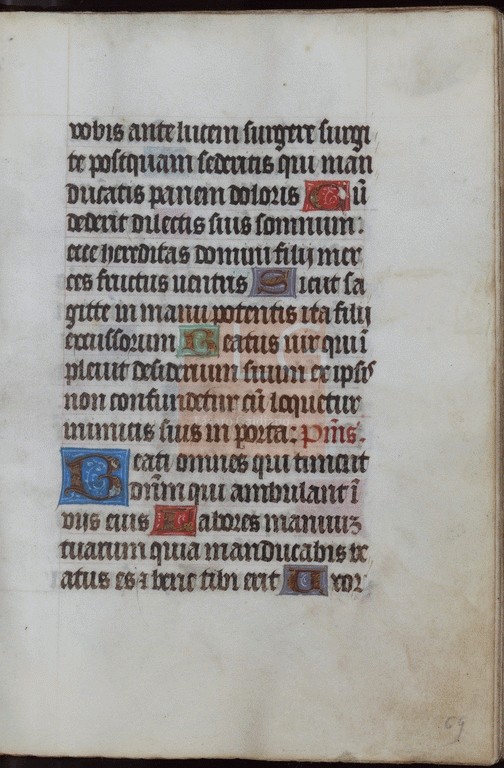 vobis ante lucem surgere surgi
te postquam sederitis qui man
ducatis panem doloris Cū
dederit dilectis suis somnum:
ecce hereditas domini filij mer
ces fructus uentris Sicut sa
gitte in manu potentis ita filij
excussorum Beatus uir qui ī
pleuit desiderium suum ex ipsis
non confundetur cū loquetur
inimicis suis in porta: Psm̄s.
Beati omnes qui timent
dn̄m qui ambulant ī
viis eius Labores manuuꝫ
tuarum quia manducabis be
atus es ⁊ bene tibi erit Uxor
69